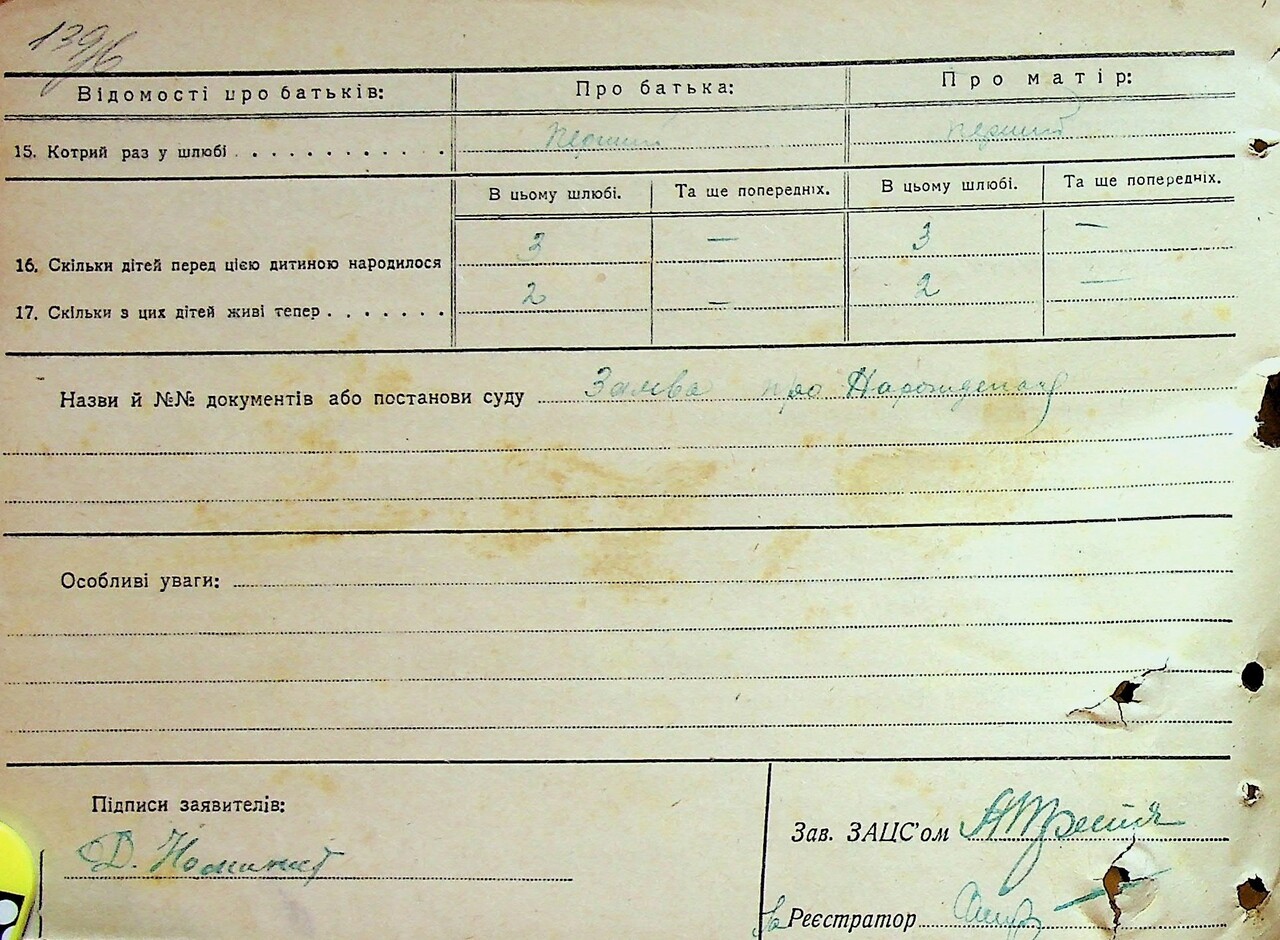 139/6
Відомості про батьків: Про батька: Про матір:
15. Котрий раз у шлюбі . . . . . . . . . . . . перший перший
В цьому шлюбі. Та ще попередніх. В цьому шлюбі. Та ще попередніх.
16. Скільки дітей перед цією дитиною народилося 3 — 3 —
17. Скільки з цих дітей живі тепер . . . . . . . 2 — 2 —
Назви й №№ документів або постанови суду Заява про
Особливі уваги:
Підписи заявителів:
Д.
Зав. ЗАЦС'ом
За Реєстратор